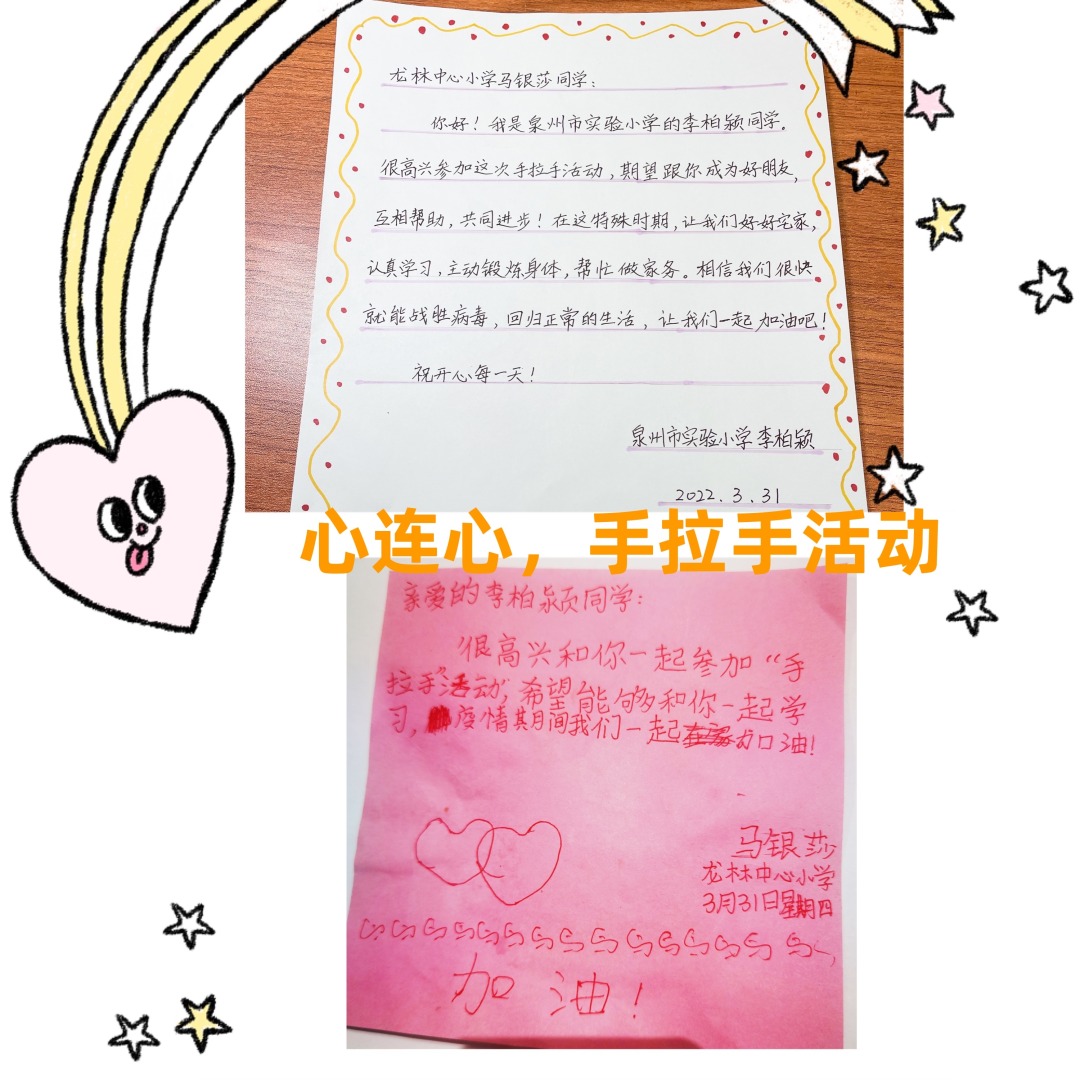 龙林中心小学马银莎同学：
你好！我是泉州市实验小学的李柏颖同学。
很高兴参加这次手拉手活动，期望跟你成为好朋友，
互相帮助，共同进步！在这特殊时期，让我们好好宅家，
认真学习，主动锻炼身体，帮忙做家务。相信我们很快
就能战胜病毒，回归正常的生活，让我们一起加油吧！
祝开心每一天！
泉州市实验小学李柏颖
2022.3.31
心连心，手拉手活动
亲爱的李柏颍同学：
很高兴和你一起参加“手
拉手”活动，希望能够和你一起学
习，疫情期间我们一起加油！
马银莎
龙林中心小学
3月31日星期四
加油！